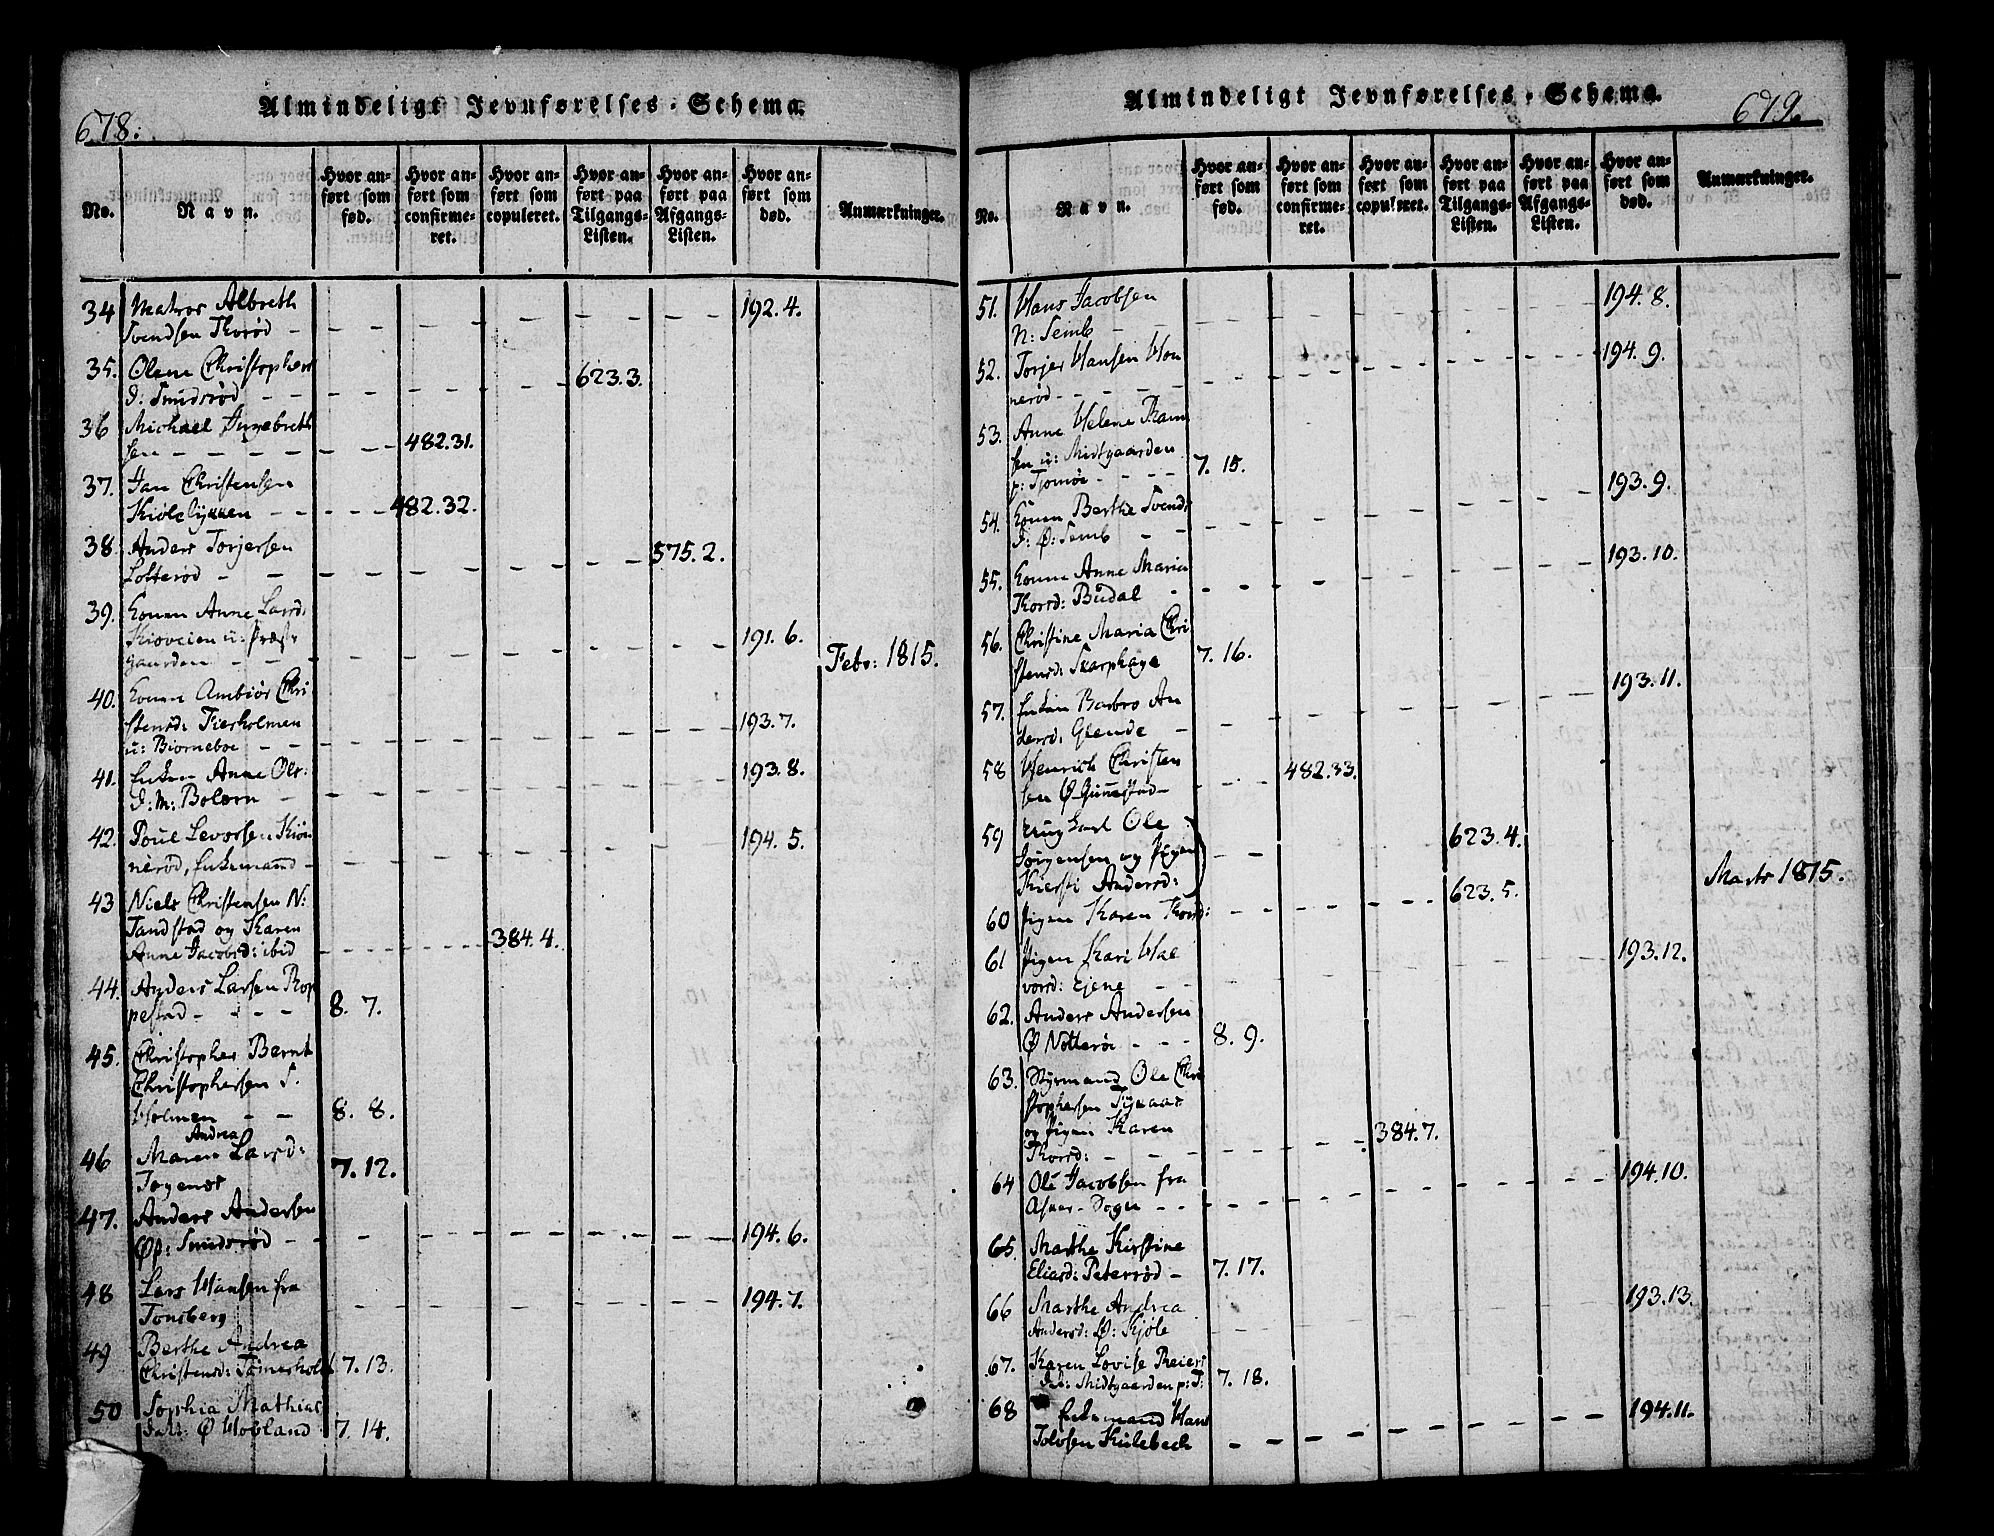 678.
Almindeligt Jevnførelses-Schema.
No.
Navn.
Hvor anført som fød.
Hvor anført som confirmeret.
Hvor anført som copuleret.
Hvor anført paa Tilgangs-Listen.
Hvor anført paa Afgangs-Listen.
Hvor anført som død.
Anmærkninger.
34 Matros Albreth
Svendsen Thorød - 192.4.
35. Olene Christophers
d: Smidsrød - 623.3.
36 Michael Ingebreth
sen - 482.31.
37. Jan Christensen
Kiøle - 482.32.
38. Anders Torjersen
Lofterød - 575.2.
39. Konen Anne Larsd:
Kioveien u: Præste
gaarden - 191.6. Febr: 1815.
40. Konen Ambiør Chri
stensd: Fierholmen
u: Biørneboe - 193.7.
41. Enken Anne Ols:
d: M: Bolærn - 193.8.
42. Poul Levorsen Kiøn
nerød, Enkemand - 194.5.
43 Niels Christensen N:
Tandstad og Karen
Anne Jacobsd: ibid - 384.4.
44. Anders Larsen Rop
pestad - 8. 7.
45. Christopher Bernt
Christophersen S.
Holmen - 8. 8.
Andrea
46 Maren Larsd:
7. 12.
47. Anders Andersen
Øp: Smidsrød - 194.6.
48 Lars Hansen fra
Tønsberg 194.7.
49 Berthe Andrea
Christensd: 7. 13.
50 Sophia Mathias
datt: Ø Hobland 7. 14.
679.
Almindeligt Jevnførelses-Schema.
No.
Navn.
Hvor anført som fød.
Hvor anført som confirmeret.
Hvor anført som copuleret.
Hvor anført paa Tilgangs-Listen.
Hvor anført paa Afgangs-Listen.
Hvor anført som død.
Anmærkninger.
51. Hans Jacobsen
N: Semb - 194.8.
52. Torjer Hansen Høn
nerød - 194.9.
53. Anne Helene
sen u: Midtgaarden
p: Tjømøe - 7. 15.
54. Konen Berthe Svends
d: Ø: Semb - 193.9.
55. Konen Anne Maria
Thorsd: Budal - 193.10.
56. Christine Maria Chri
stensd: Skarphage 7. 16.
57. Enken Barbro An
dersd: Glende - 193.11.
58 Henrich Christen
sen Ø Gunnestad - 482.33.
59 Ungkarl Ole
Jørgensen og Pigen
Kiersti Andersd: 623.4.
60 Pigen Karen Thorsd: 623.5. Marts 1815.
61 Pigen Kari Hal
vorsd: Ejene - 193.12.
62. Anders Andersen
Ø Nøtterøe - 8. 9.
63. Styrmand Ole Chri
stophersen
og Pigen Karen
Thorsd: - 384.7.
64 Ole Jacobsen fra
Asker-Sogn - 194.10.
65. Marthe Kirstine
Eliasd: Petersrød - 7. 17.
66 Marthe Andrea
Andersd: Ø: Kjøle 193.13.
67. Karen Lovise Reiers
dat: Midtgaarden p: T: 7. 18.
68 Enkemand Hans
Tolvsen Kulebech 194.11.